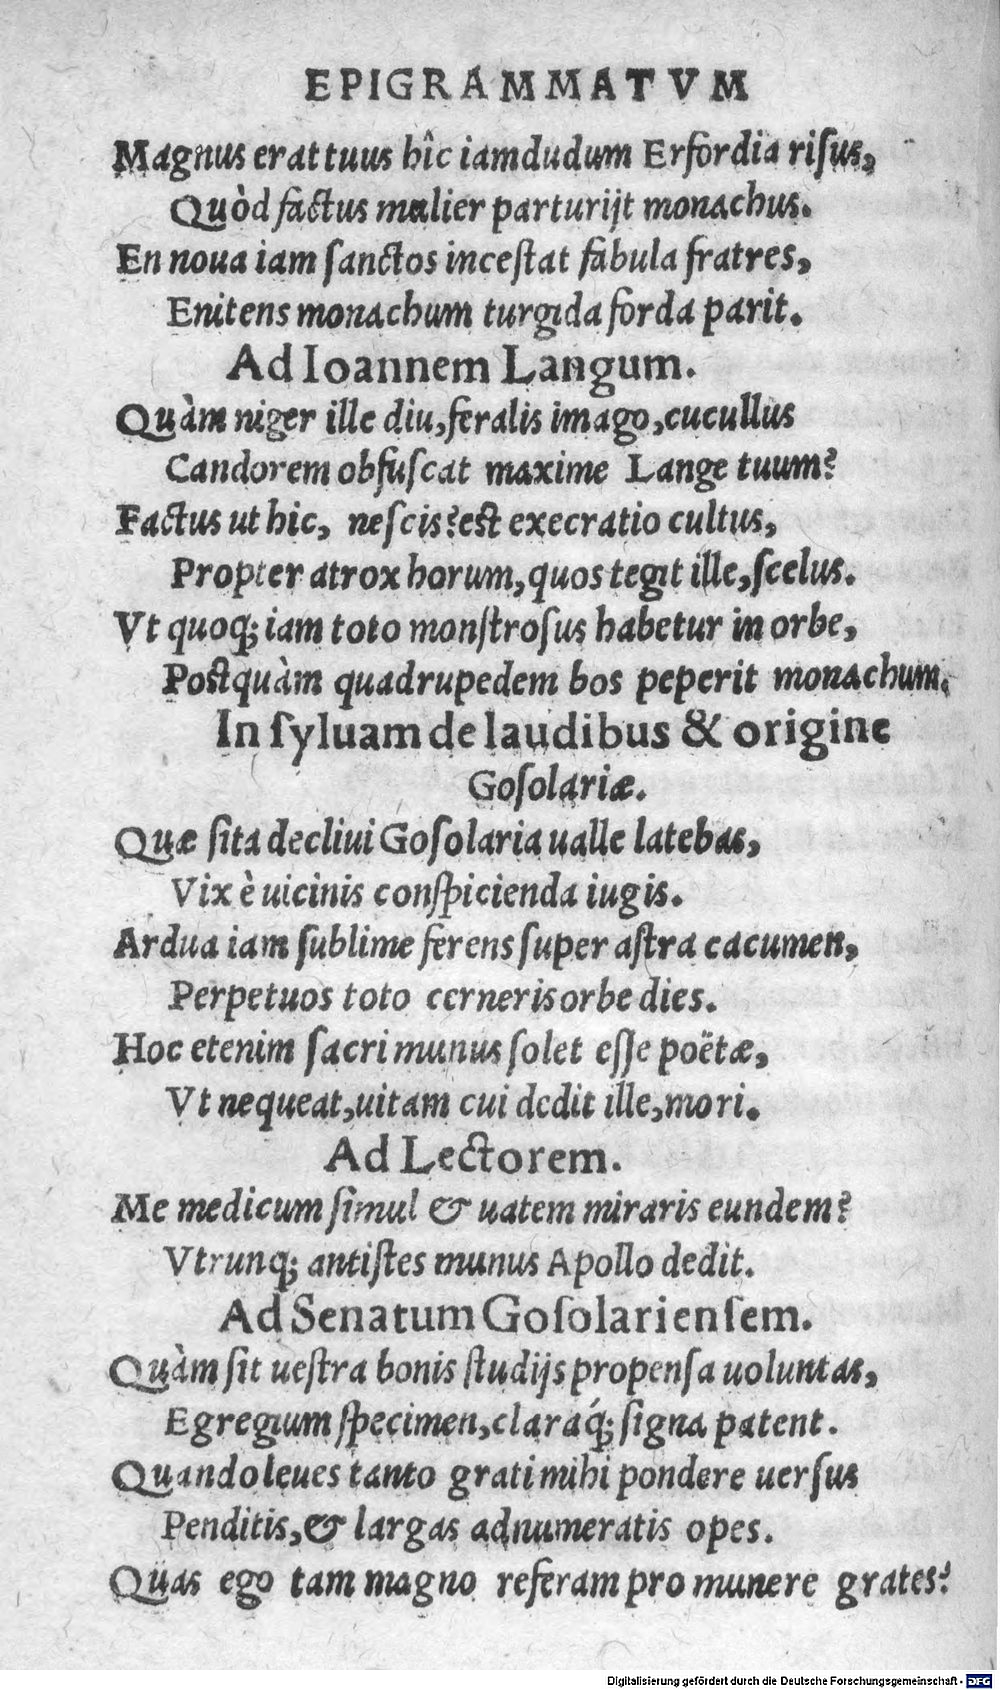 EPIGRAMMATVM
Magnus erat tuus hîc iamdudum Erfordia risus,
Quòd factus mulier parturijt monachus.
En noua iam sanctos incestat fabula fratres,
Enitens monachum turgida forda parit.
Ad Ioannem Langum.
Quàm niger ille diu, feralis imago, cucullus
Candorem obfuscat maxime Lange tuum?
Factus ut hic, nescis? est execratio cultus,
Propter atrox horum, quos tegit ille, scelus.
Vt quoq; iam toto monstrosus habetur in orbe,
Postquàm quadrupedem bos peperit monachum.
In syluam de laudibus & origine
Gosolariæ.
Quæ sita decliui Gosolaria ualle latebas,
Vix è uicinis conspicienda iugis.
Ardua iam sublime ferens super astra cacumen,
Perpetuos toto cerneris orbe dies.
Hoc etenim sacri munus solet esse poëtæ,
Vt nequeat, uitam cui dedit ille, mori.
Ad Lectorem.
Me medicum simul & uatem miraris eundem?
Vtrunq; antistes munus Apollo dedit.
Ad Senatum Gosolariensem.
Quàm sit uestra bonis studijs propensa uoluntas,
Egregium specimen, claraq́; signa patent.
Quando leues tanto grati mihi pondere uersus
Penditis, & largas adnumeratis opes.
Quas ego tam magno referam pro munere grates?
Digitalisierung gefördert durch die Deutsche Forschungsgemeinschaft - DFG